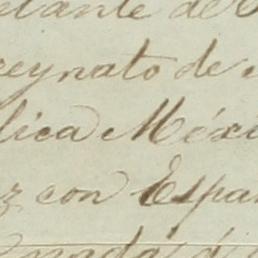 elante de
reynato de
lica Méxi
z con Espa